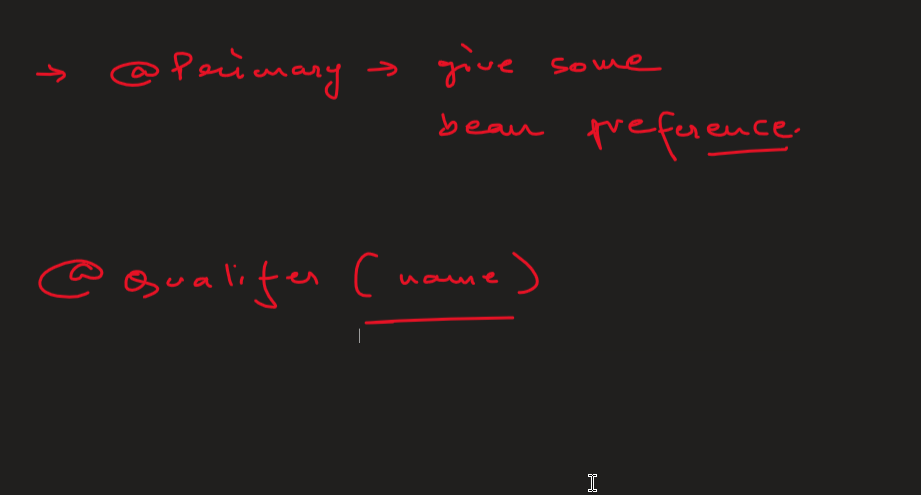 → @Primary → give some
bean preference.
@Qualifer (name)